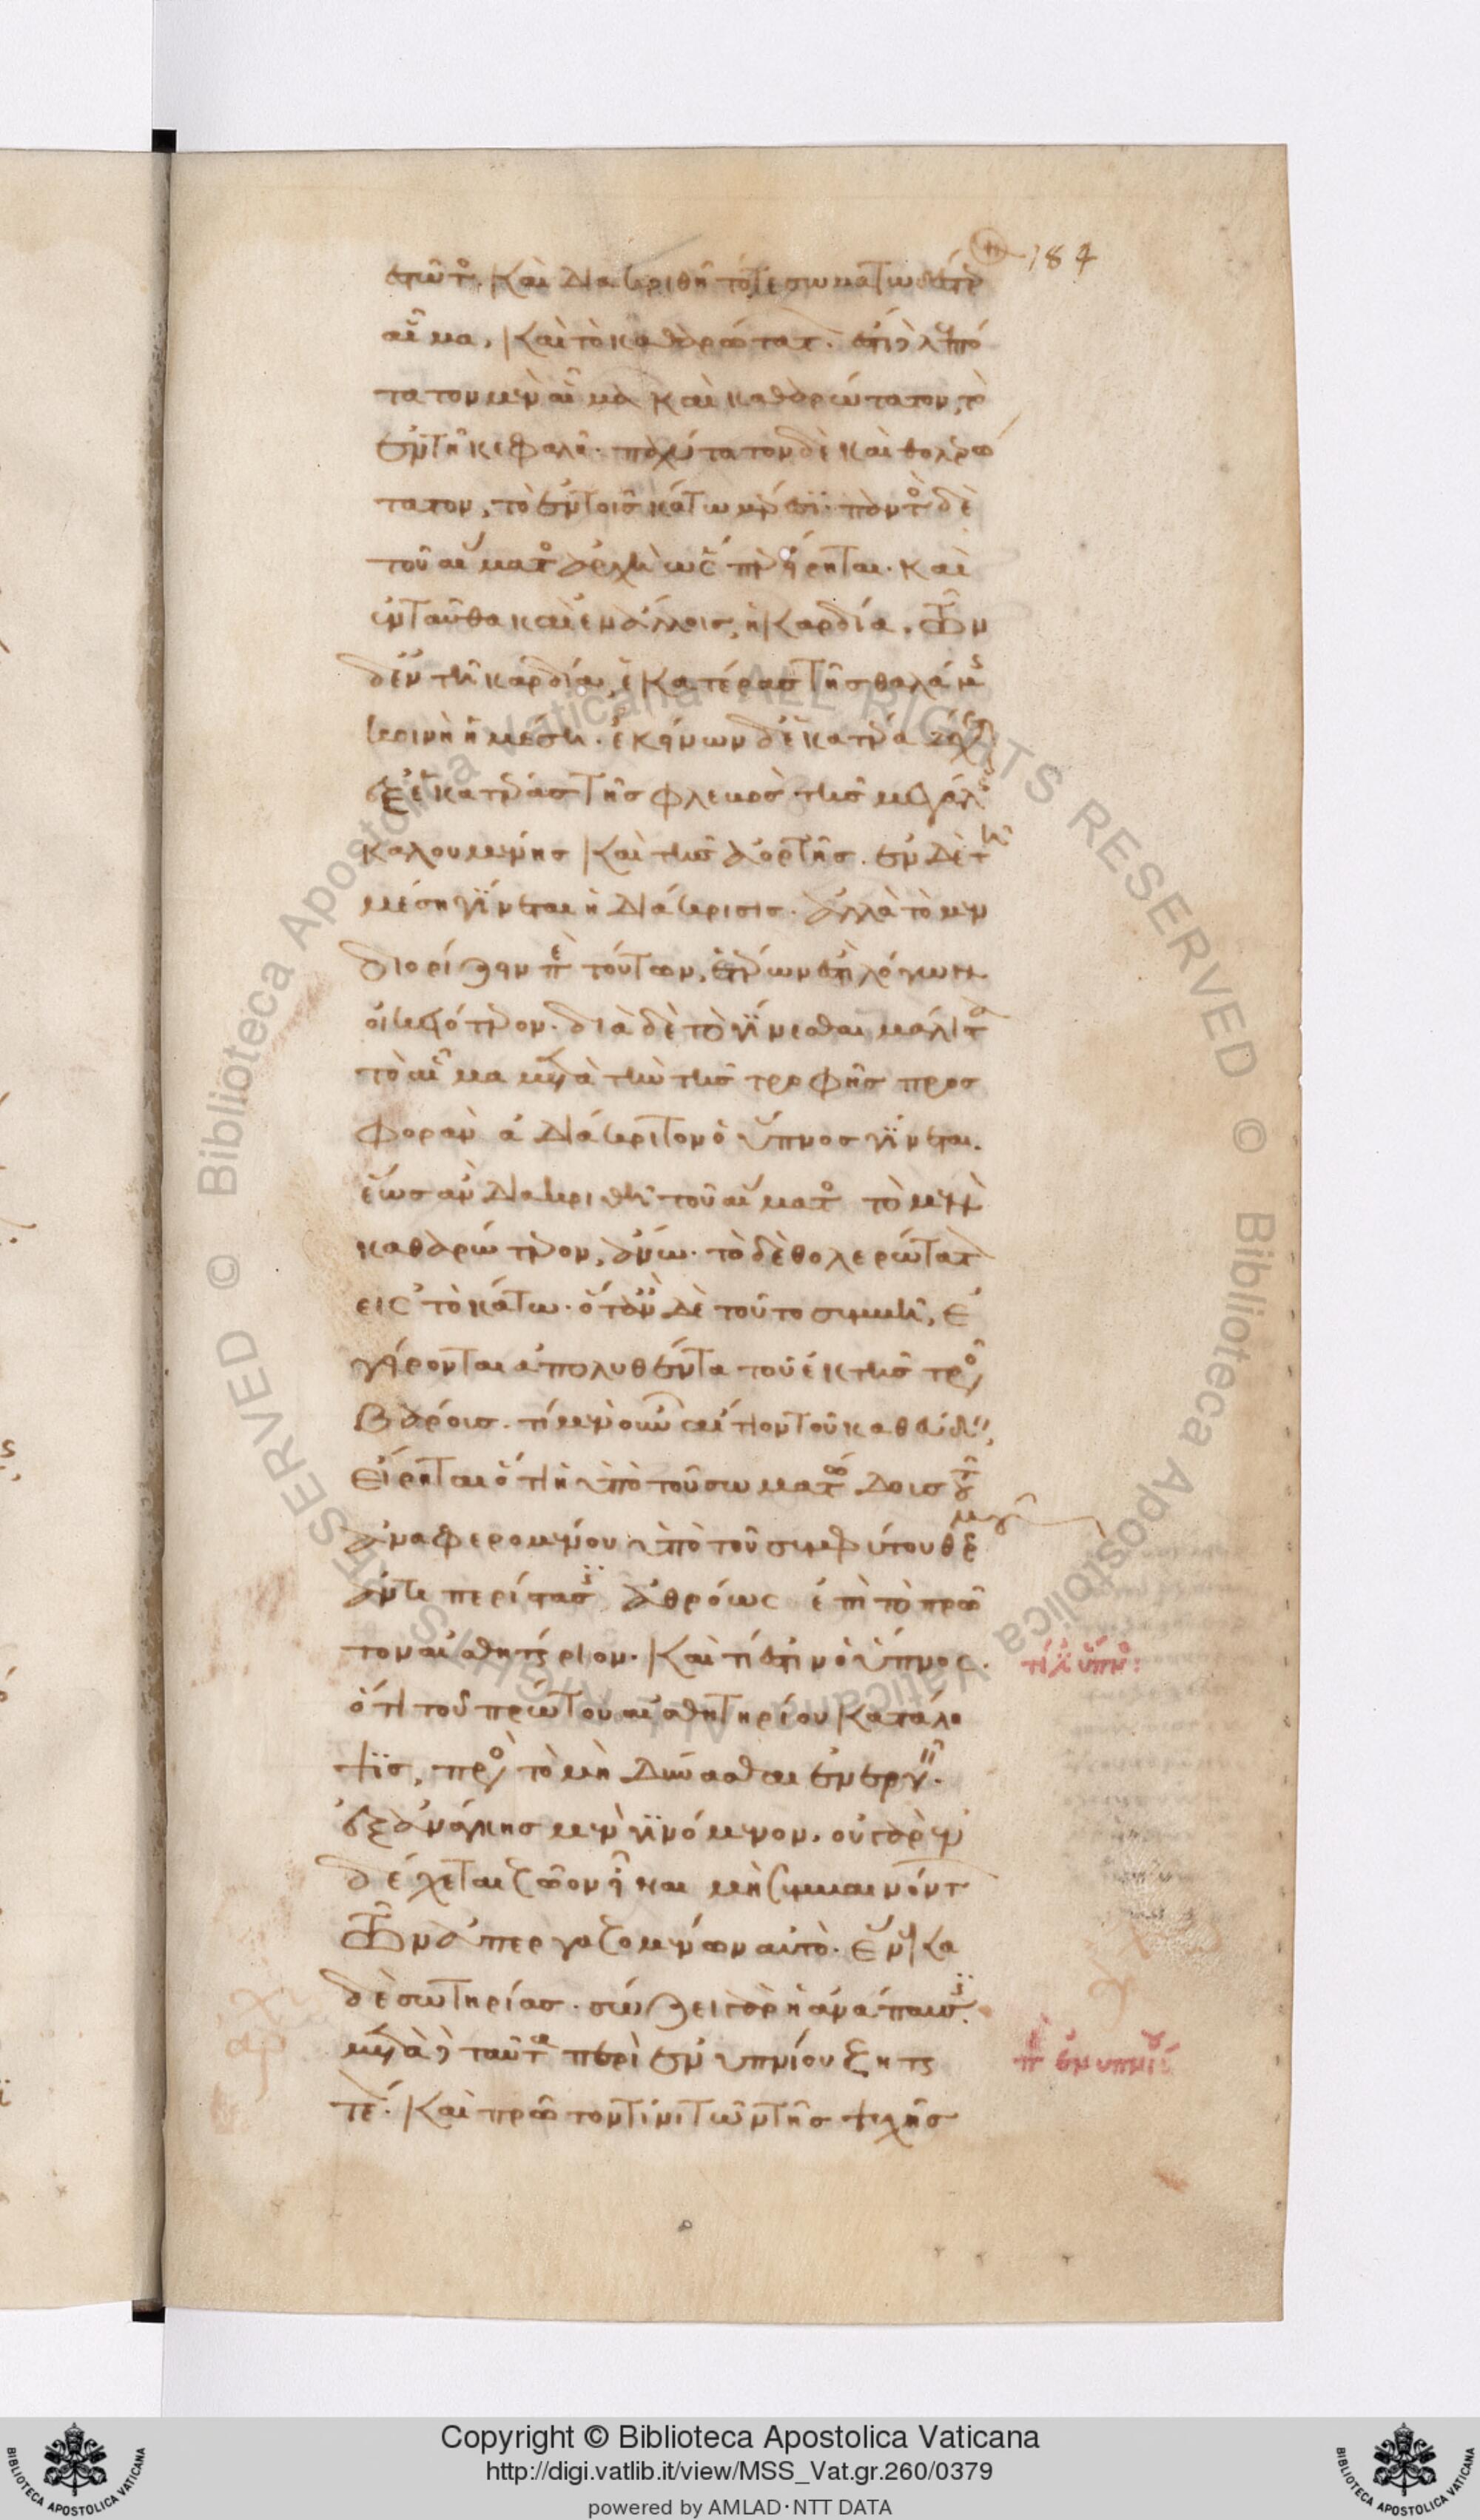 184
στῶτος. καὶ διακριθῇ τό τε σωματωδέστερον
αἷμα, καὶ τὸ καθαρώτατον. ἔστι δὲ λεπτό
τατον μὲν αἷμα καὶ καθαρώτατον, τὸ
ἐν τῇ κεφαλῇ. παχύτατον δὲ καὶ θολερώ
τατον, τὸ ἐν τοῖς κάτω μέρεσι. παντὸς δὲ
τοῦ αἵματος ἀρχὴ ὡς προείρηται. καὶ
ἐνταῦθα καὶ ἐν ἄλλοις, ἡ καρδία. τῶν
δ' ἐν τῇ καρδίᾳ, ἑκατέρας τῆς θαλάμης
κοινὴ ἡ μέση. ἐκείνων δ' ἑκατέρα δέχεται
ἐξ ἑκατέρας τῆς φλεβὸς τῆς μεγάλης
καλουμένης καὶ τῆς ἀορτῆς. ἐν δὲ τῇ
μέση γίνεται ἡ διάκρισις. ἀλλὰ τὸ μὲν
διορίζειν περὶ τούτων, ἑτέρων ἐστὶ λόγων
οἰκειότερον. διὰ δὲ τὸ γίνεσθαι μάλιστα
τὸ αἷμα μετὰ τὴν τῆς τροφῆς προσ
φορὰν ἀδιάκριτον ὁ ὕπνος γίνεται.
ἕως ἂν διακριθῇ τοῦ αἵματος τὸ μὲν
καθαρώτερον, ἄνω. τὸ δὲ θολερώτατον
εἰς τὸ κάτω. ὅταν δὲ τοῦτο συμβῇ, ἐ
γείρονται ἀπολυθέντα τοῦ ἐκ τῆς τροφῆς
βάρους. τί μὲν οὖν αἴτιον τοῦ καθεύδειν,
εἴρηται ὅτι ἡ ὑπὸ τοῦ σωματώδους τοῦ
ἀναφερομένου ὑπὸ τοῦ συμφύτου θερμοῦ
ἀντιπερίστασις ἀθρόως ἐπὶ τὸ πρῶ
τον αἰσθητήριον. καὶ τί ἐστιν ὁ ὕπνος.
τί ἐστιν ὕπνος:
ὅτι τοῦ πρώτου αἰσθητηρίου κατάλη
ψις, πρὸς τὸ μὴ δύνασθαι ἐνεργεῖν.
ἐξ ἀνάγκης μὲν γινόμενον. οὐ γὰρ ἐν
δέχεται ζῷον εἶναι μὴ συμβαινόντων
τῶν ἀπεργαζομένων αὐτό. ἕνεκα
δὲ σωτηρίας. σώζει γὰρ ἡ ἀνάπαυσις.
μετὰ δὲ ταῦτα περὶ ἐνυπνίου ζητη
περὶ ἐνυπνίου
τέον. καὶ πρῶτον τίνι τῶν τῆς ψυχῆς
Copyright © Biblioteca Apostolica Vaticana
http://digi.vatlib.it/view/MSS_Vat.gr.260/0379
powered by AMLAD·NTT DATA